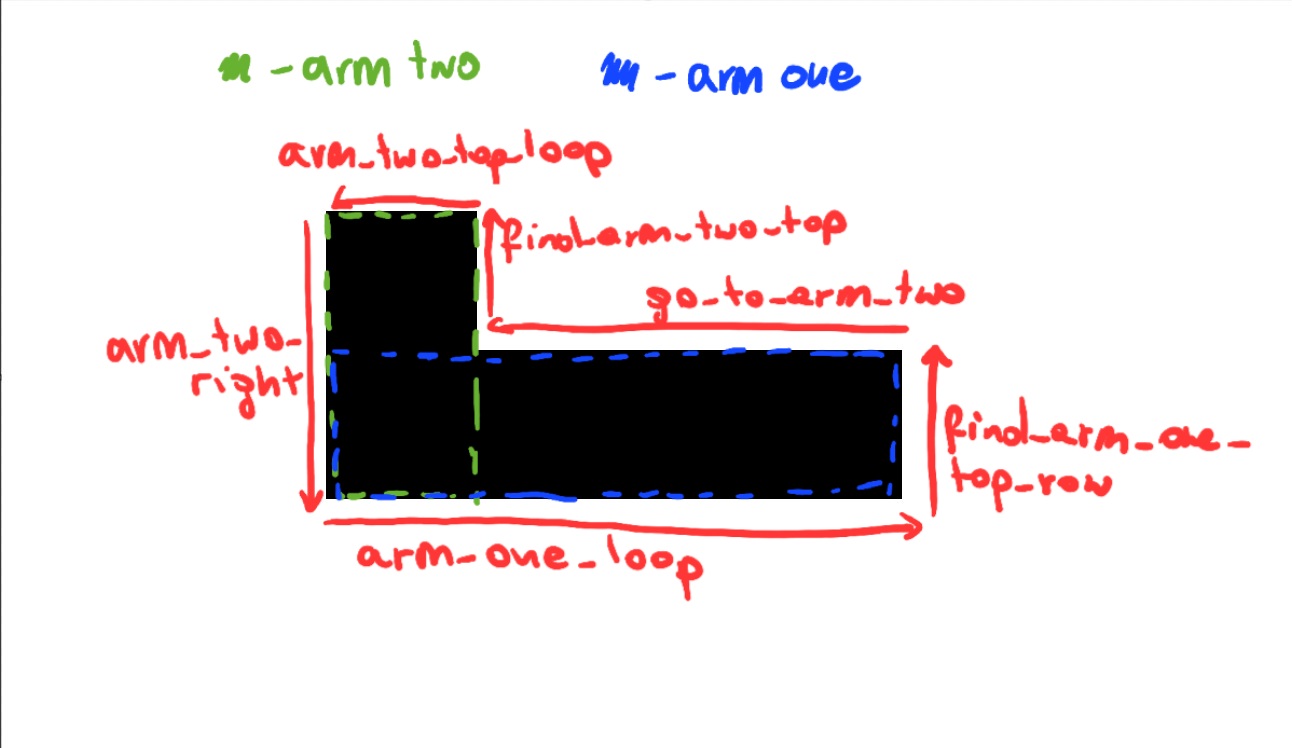 m - arm two
m - arm one
arm_two_top_loop
find_arm_two_top
go_to_arm_two
arm_two_
right
find_arm_one_
top_row
arm_one_loop